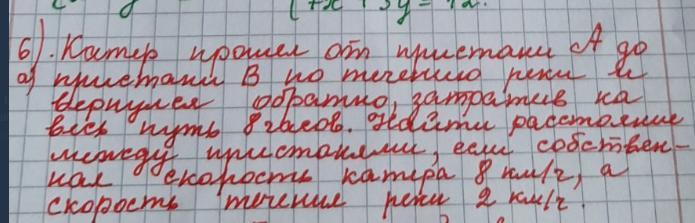 (7x + 3y = 12.
6). Катер прошел от пристани А до
а) пристани В по течению реки и
вернулся обратно, затратив на
весь путь 8 часов. Найти расстояние
между пристанями, если собствен-
ная скорость катера 8 км/ч, а
скорость течение реки 2 км/ч.